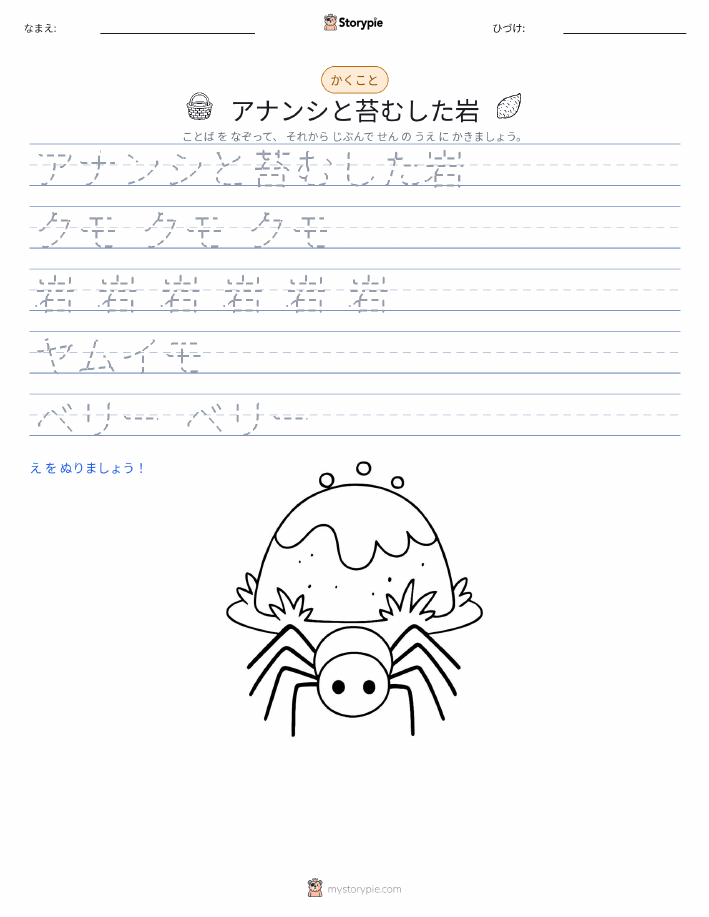 なまえ:
Storypie
ひづけ:
かくこと
アナンシと苔むした岩
ことば を なぞって、 それから じぶんで せん の うえ に かきましょう。
アナンシと苔むした岩
クモ クモ クモ
岩 岩 岩 岩 岩 岩
ヤムイモ
ベリー ベリー
え を ぬりましょう！
mystorypie.com